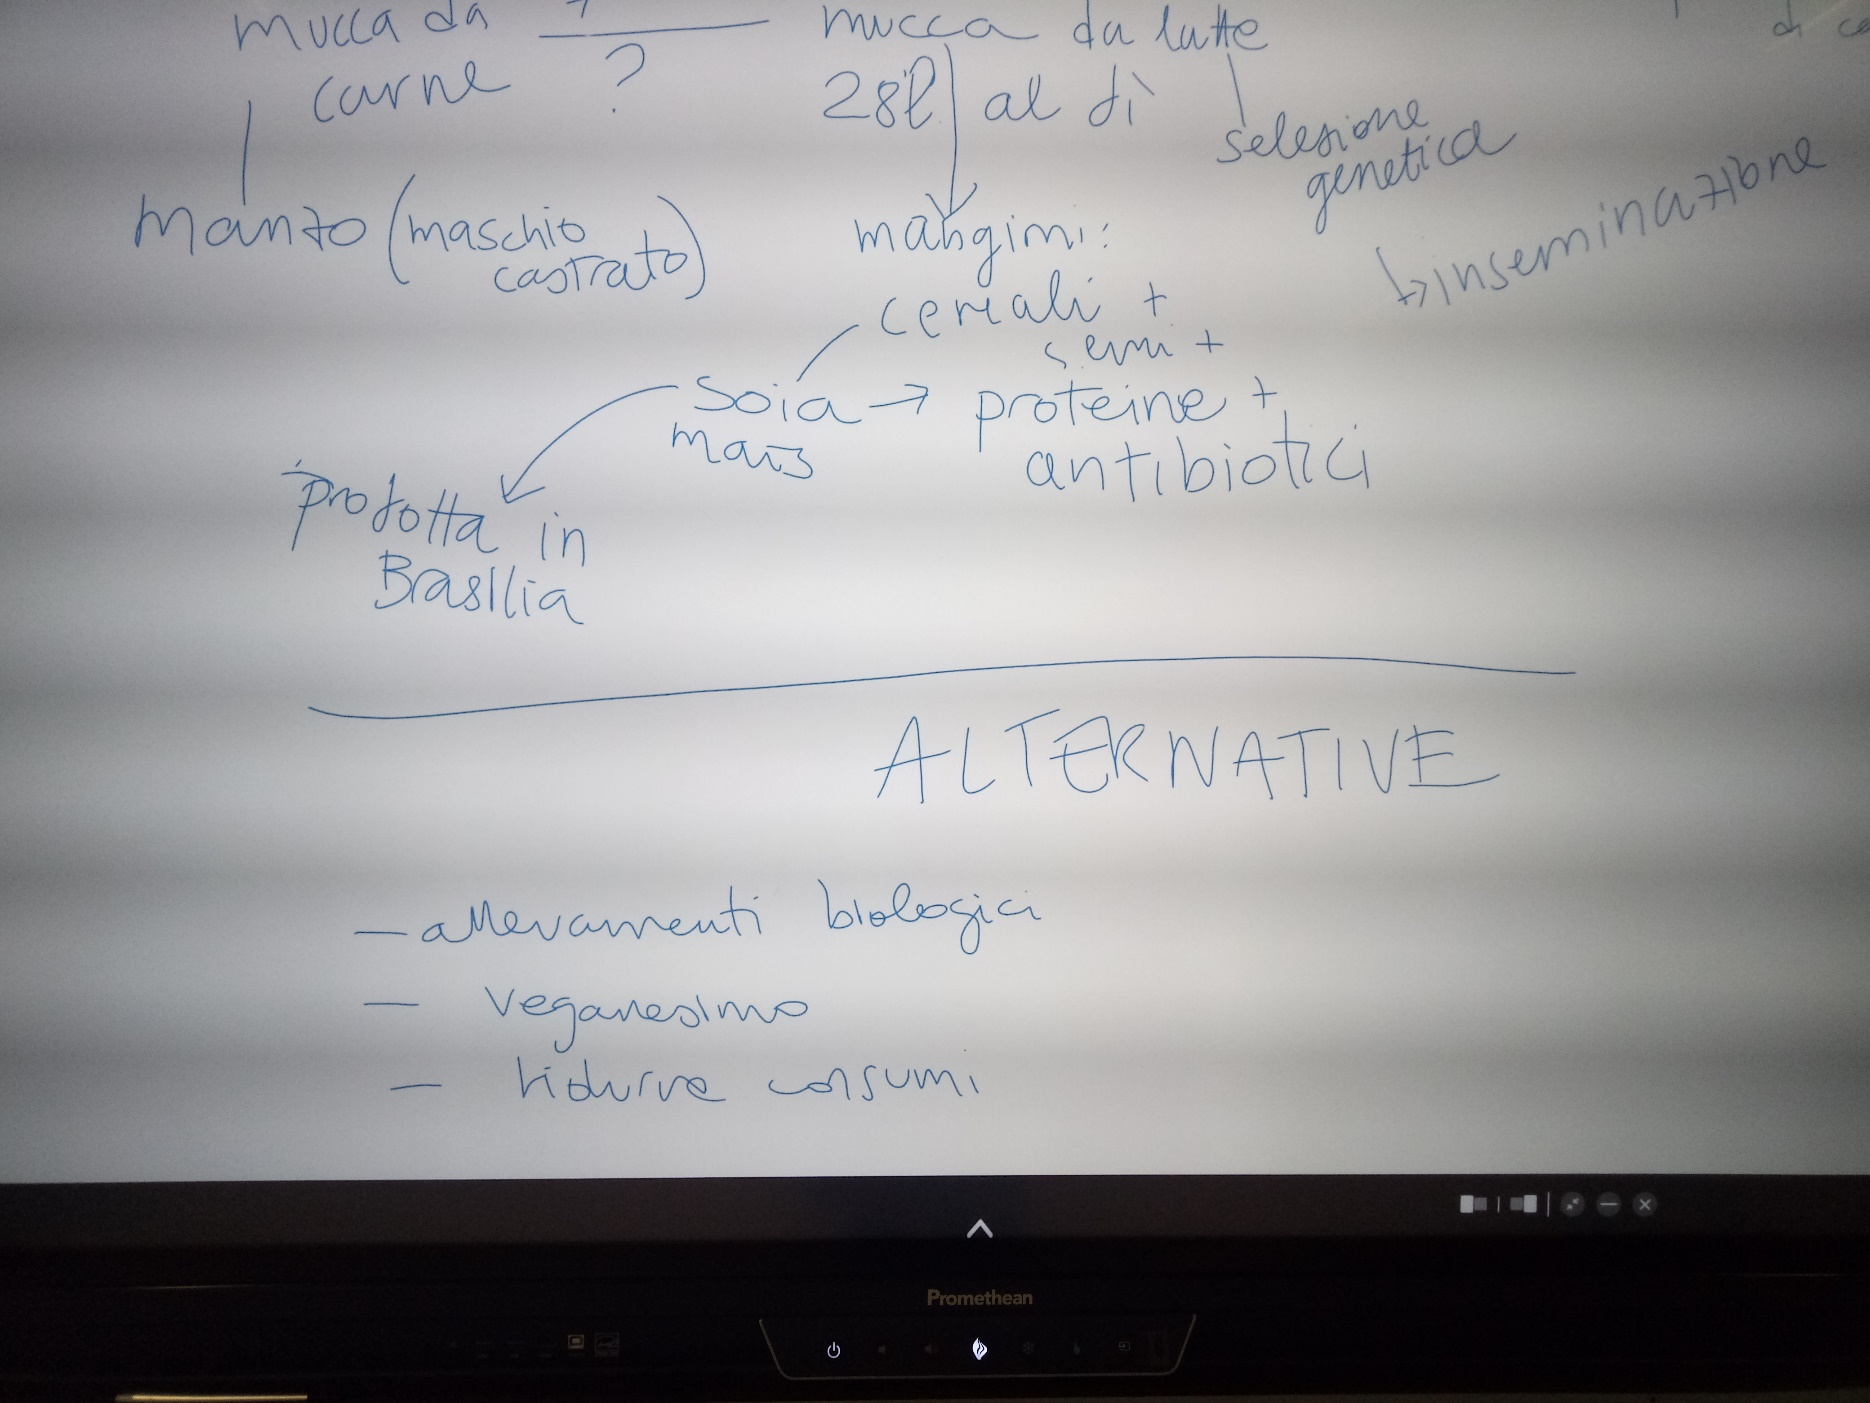 mucca da ? mucca da latte
carne 28l al dì
selezione
genetica
inseminazione
manzo (maschio
castrato)
mangimi:
cereali +
semi +
soia → proteine +
mais antibiotici
prodotta in
Brasilia
ALTERNATIVE
- allevamenti biologici
- veganesimo
- ridurre consumi
Promethean